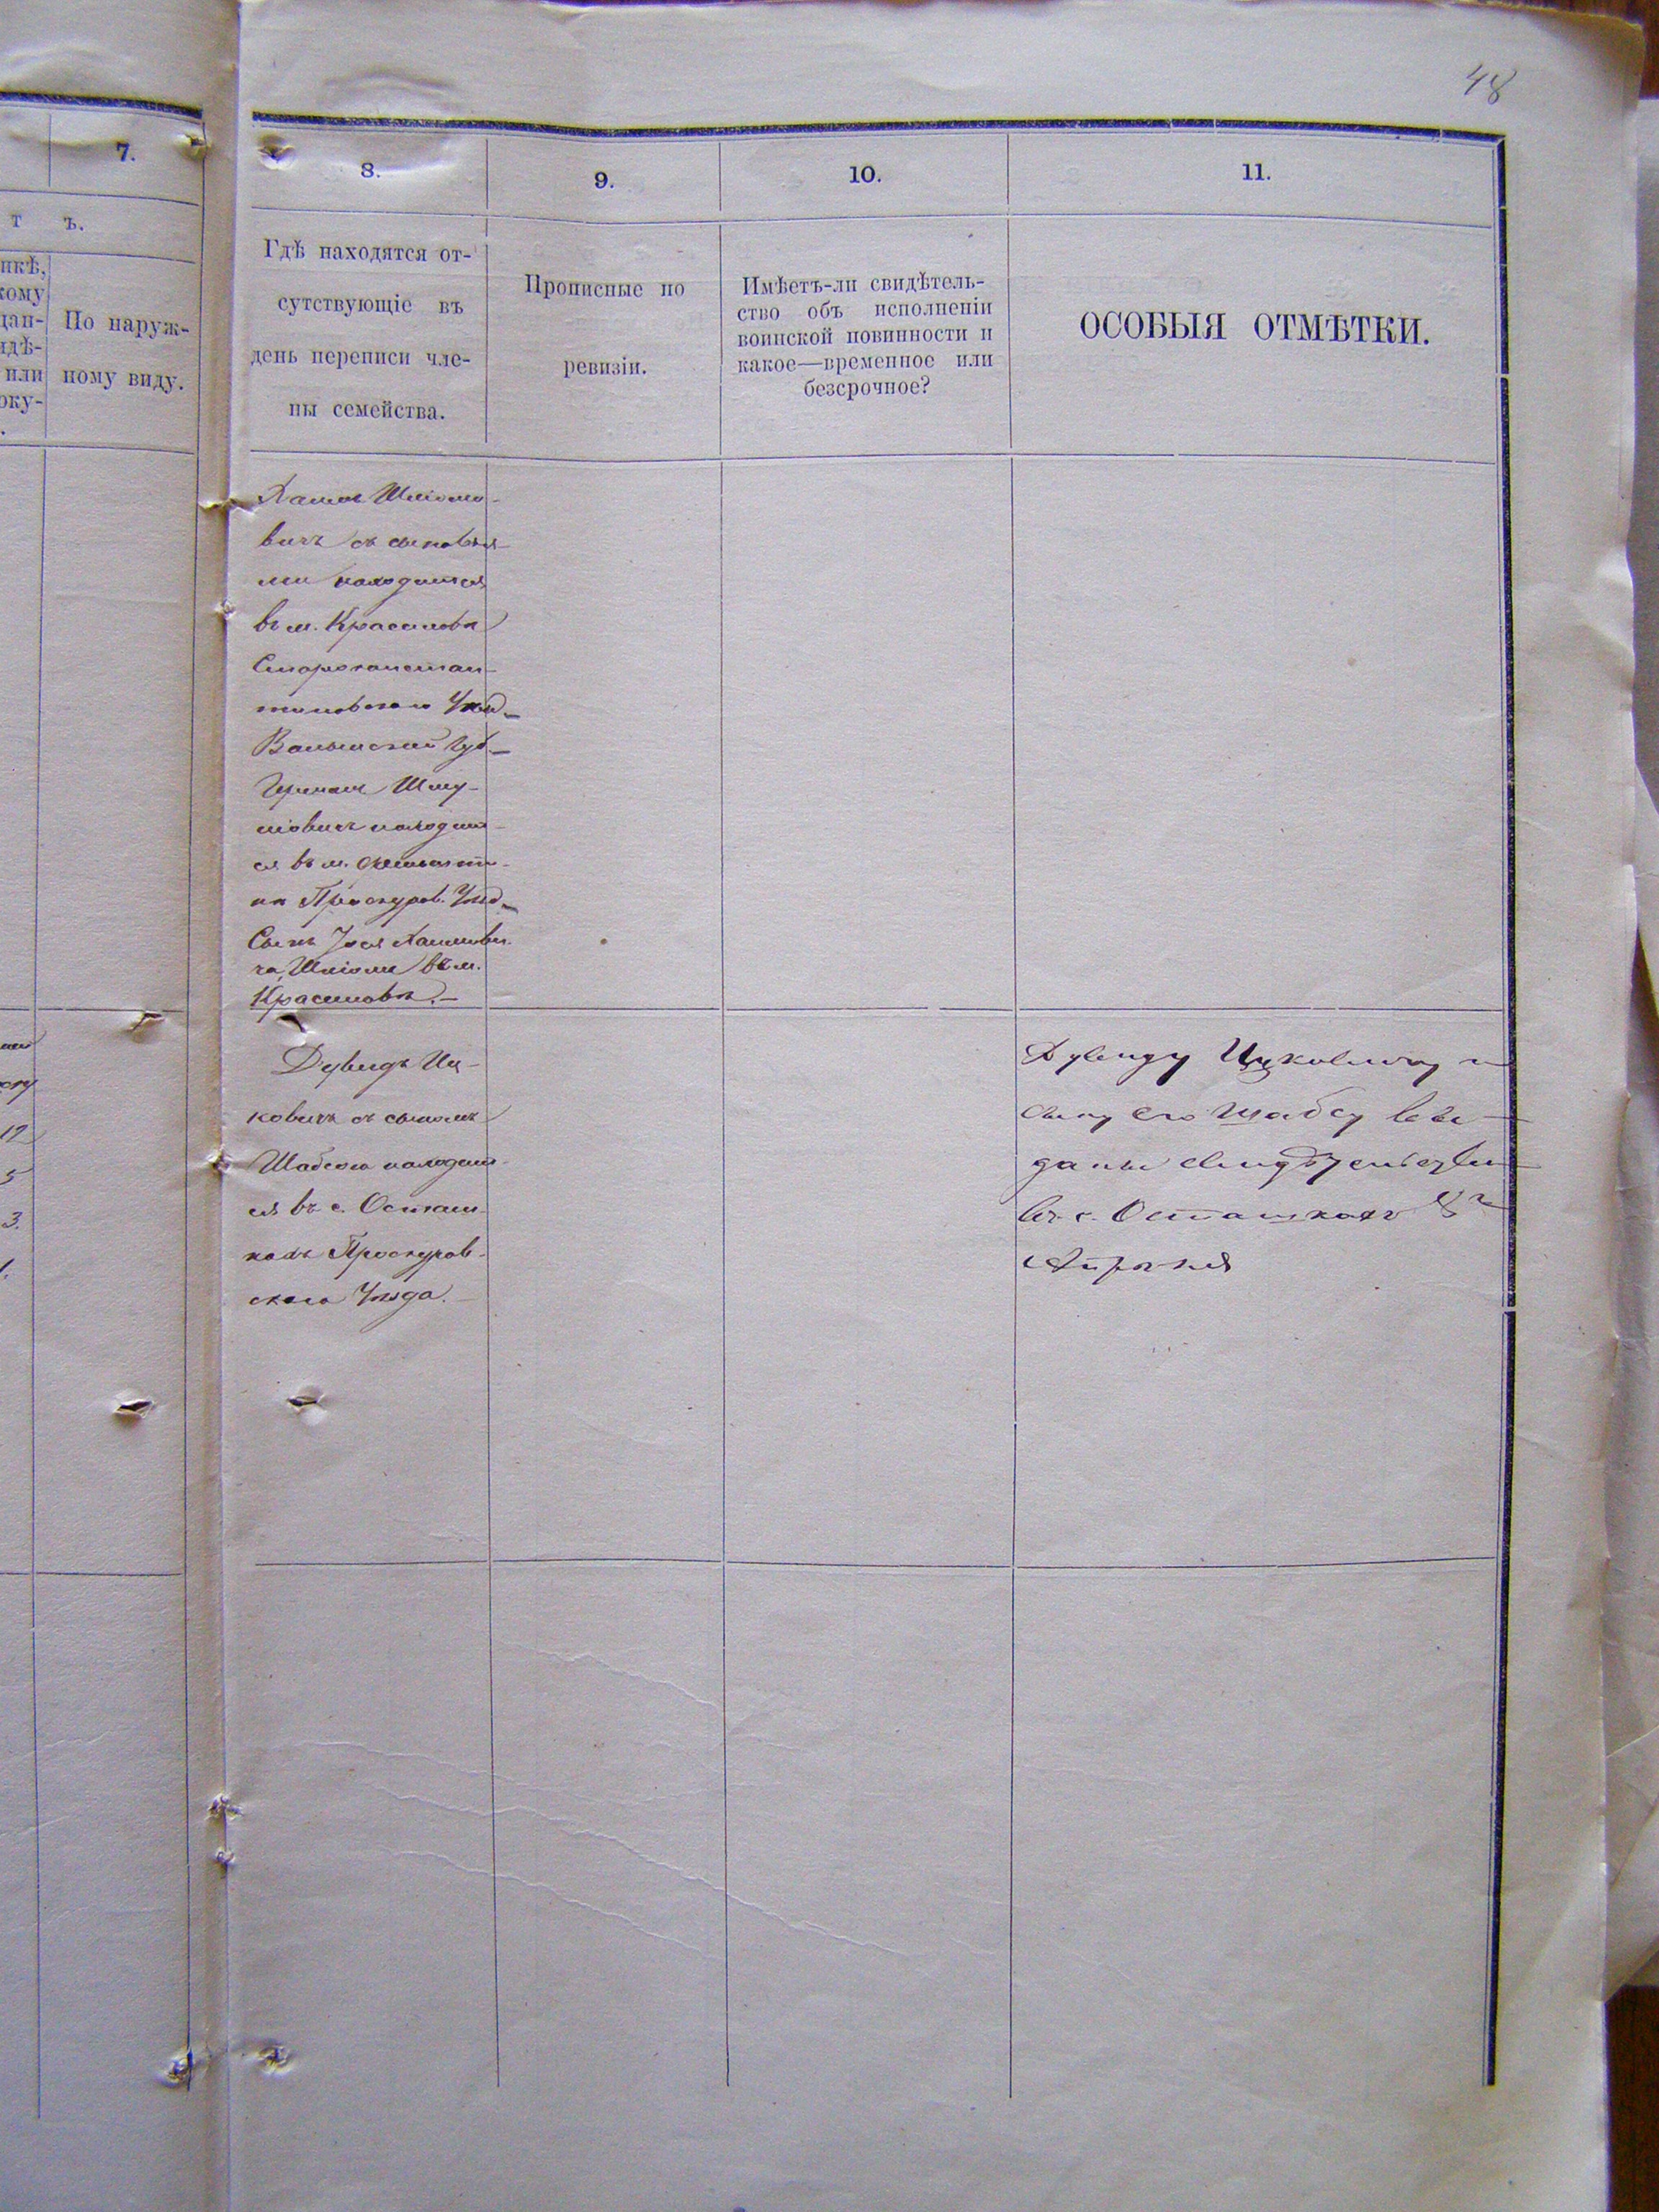 48
7.
8.
9.
10.
11.
т ъ.
По наруж-
ному виду.
Гдѣ находятся от-
сутствующіе въ
день переписи чле-
ны семейства.
Прописные по
ревизіи.
Имѣетъ-ли свидѣтель-
ство объ исполненіи
воинской повинности и
какое—временное или
безсрочное?
ОСОБЫЯ ОТМѢТКИ.
Хаимъ Шліомо-
вичъ съ сыновья-
ми находится
въ м. Красиловѣ
Староконстан-
тиновского Уѣзд.
Волынской Губ.
Шму-
ліовичъ находит-
ся въ м.
Проскуров. Уѣзд.
Сынъ Іося Хаимови-
ча, Шліома въ м.
Красиловѣ.—
Дувидъ Иц-
ковичъ съ сыномъ
Шабсою находит-
ся въ с. Осташ-
кахъ Проскуров-
скаго Уѣзда.—
Дувиду Ицковичу и
сыну его Шабсу вы-
даны
въ с. Осташкахъ 8го
Апрѣля